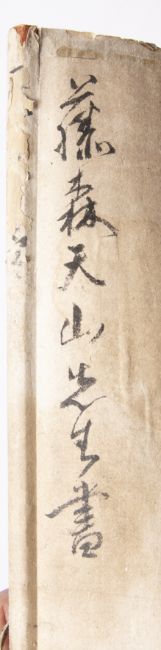 藤森天山先生書